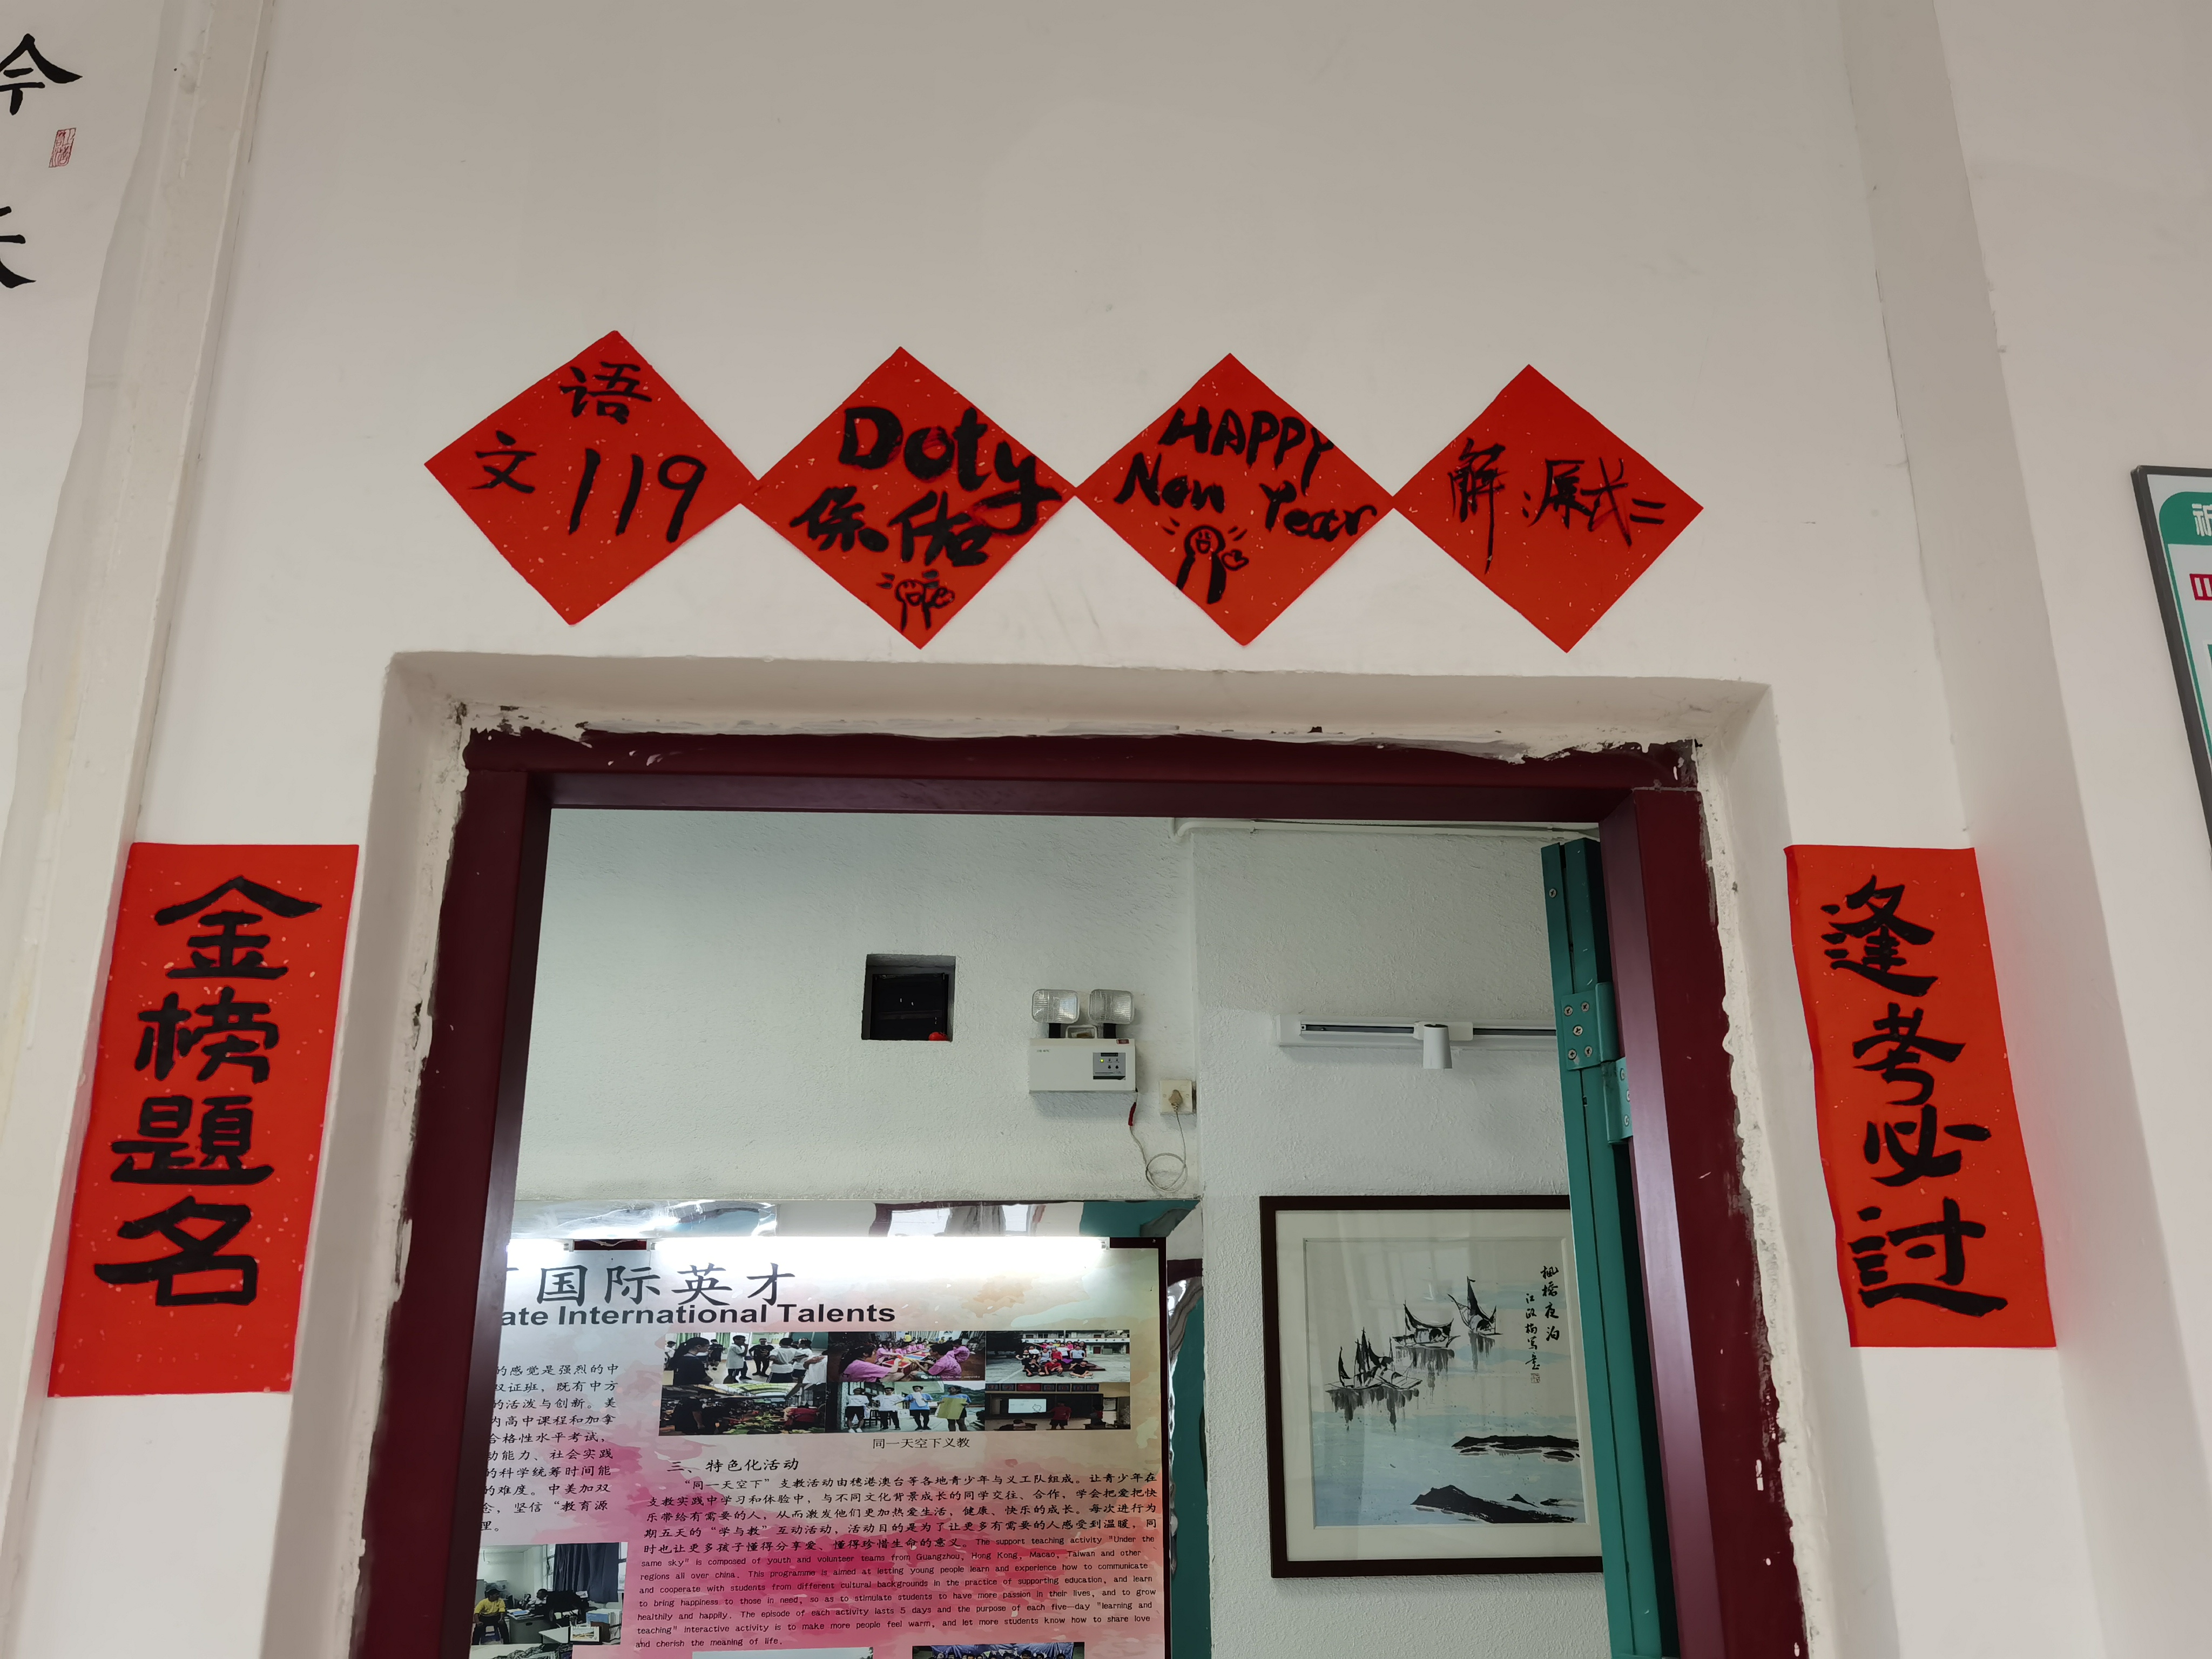 今
天
语
文 119
Doty
保佑
HAPPY
Nen Year
解:原式=
金榜题名
逢考必过
国际英才
ate International Talents
的感觉是强烈的中
双证班，既有中方
的活泼与创新。美
内高中课程和加拿
合格性水平考试，
动能力、社会实践
的科学统筹时间能
的难度。中美加双
念，坚信“教育源
里。
同一天空下义教
三、特色化活动
“同一天空下”支教活动由穗港澳台等各地青少年与义工队组成。让青少年在
支教实践中学习和体验中，与不同文化背景成长的同学交往、合作，学会把爱把快
乐带给有需要的人，从而激发他们更加热爱生活，健康、快乐的成长。每次进行为
期五天的“学与教”互动活动，活动目的是为了让更多有需要的人感受到温暖，同
时也让更多孩子懂得分享爱、懂得珍惜生命的意义。The support teaching activity "Under the
same sky" is composed of youth and volunteer teams from Guangzhou, Hong Kong, Macao, Taiwan and other
regions all over china. This programme is aimed at letting young people learn and experience how to communicate
and cooperate with students from different cultural backgrounds in the practice of supporting education, and learn
to bring happiness to those in need, so as to stimulate students to have more passion in their lives, and to grow
healthily and happily. The episode of each activity lasts 5 days and the purpose of each five-day "learning and
teaching" interactive activity is to make more people feel warm, and let more students know how to share love
and cherish the meaning of life.
枫桥夜泊